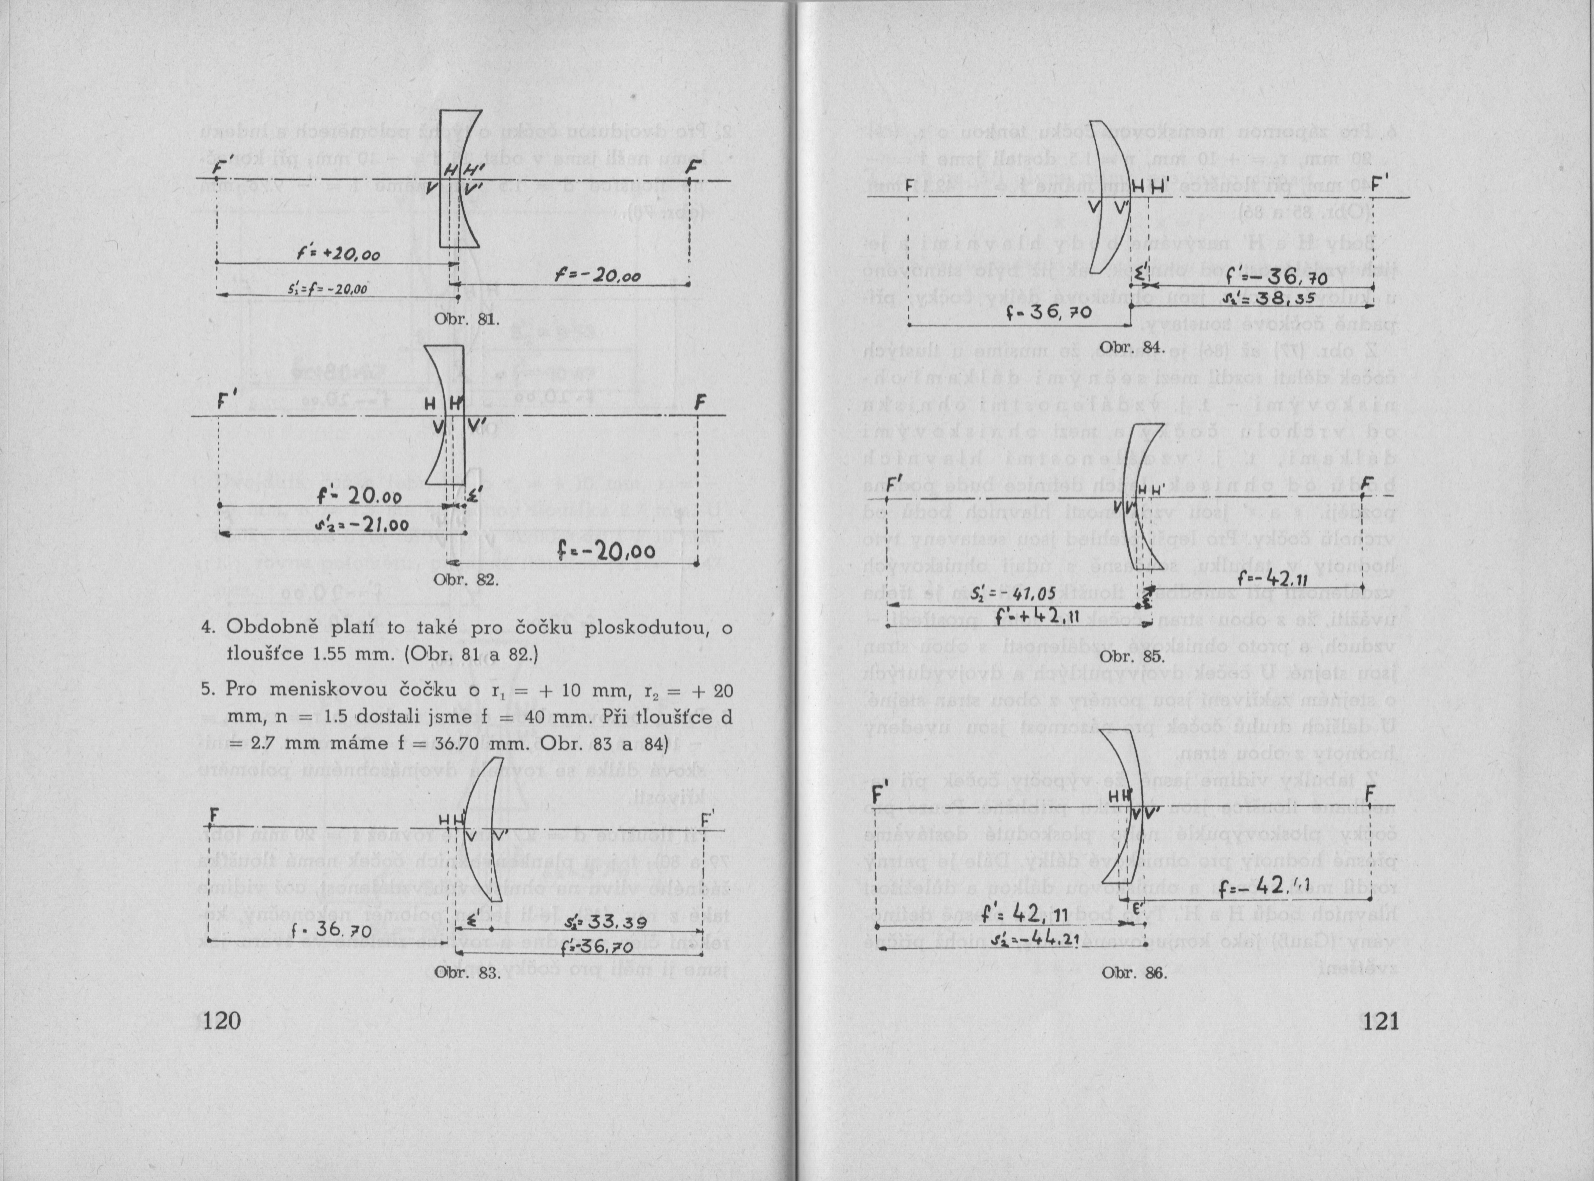 F' H H' F
V V'
f'= +20,00
f=-20,00
s'₂=f=-20,00
Obr. 81.
F' H H' F
V V'
f'- 20.00 ε'
s'₂=-21.00
f=-20,00
Obr. 82.
4. Obdobně platí to také pro čočku ploskodutou, o
tloušťce 1.55 mm. (Obr. 81 a 82.)
5. Pro meniskovou čočku o r₁ = + 10 mm, r₂ = + 20
mm, n = 1.5 dostali jsme f = 40 mm. Při tloušťce d
= 2.7 mm máme f = 36.70 mm. Obr. 83 a 84)
F H H' F'
V V'
f · 36.70 ε' s'₂= 33,39
f'=-36,70
Obr. 83.
120
F H H' F'
V V'
ε' f'=-36,70
f-36,70 s'₂=38,35
Obr. 84.
F' H H' F
V V'
f=-42.11
S'₂=-41,05 ε'
f'-+42,11
Obr. 85.
F' H H' F
V V'
f=-42.11
f'= 42,11 ε'
s'₂=-44.21
Obr. 86.
121